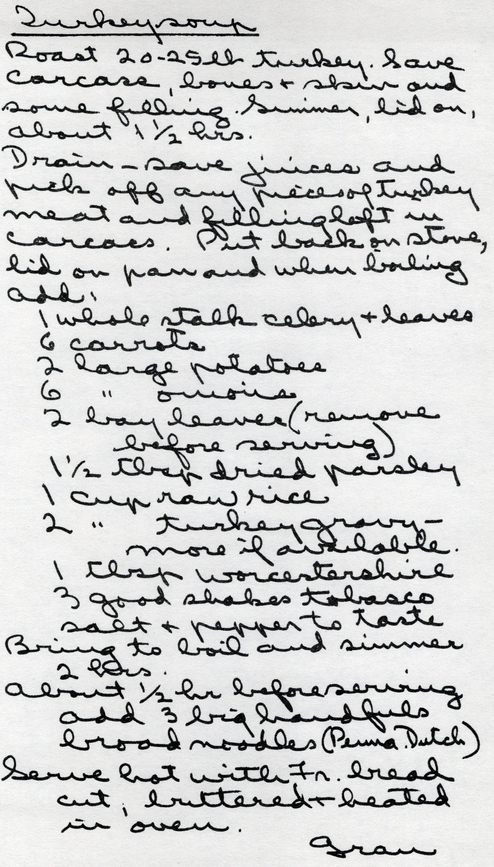 Turkey soup
Roast 20-25 lb turkey. Save
carcase, bones + skin and
some filling. Simmer, lid on,
about 1 1/2 hrs.
Drain - save juices and
pick off any pieces of turkey
meat and filling left in
carcaes. Put back on stove,
lid on pan and when boiling
add:
1 whole stalk celery + leaves
6 carrots
2 large potatoes
6 " onions
2 bay leaves (remove
before serving)
1 1/2 tbsp dried parsley
1 cup raw rice
2 " turkey gravy -
more if available.
1 tbsp worcestershire
3 good shakes tobasco
salt + pepper to taste
Bring to boil and simmer
2 hrs.
About 1/2 hr before serving
add 3 big handfuls
broad noodles (Penna. Dutch)
Serve hot with Fr. bread
cut, buttered + heated
in oven.
Gran